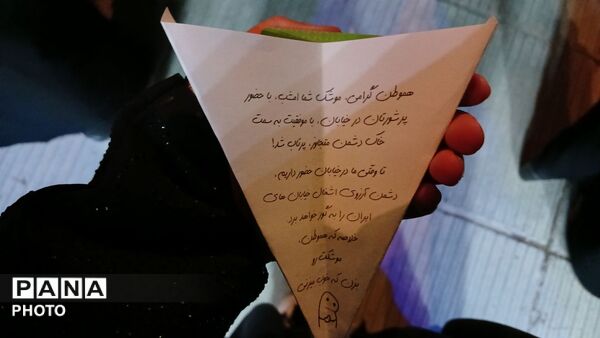 هموطن گرامی، موشک شما امشب، با حضور
پرشورتان در خیابان، با موفقیت به سمت
خاک دشمن متجاوز، پرتاب شد!
تا وقتی ما در خیابان حضور داریم،
دشمن آرزوی اشغال خیابان های
ایران را به گور خواهد برد
خلاصه که هموطن،
موشکت رو
بزن که خوب میزنی
PANA
PHOTO